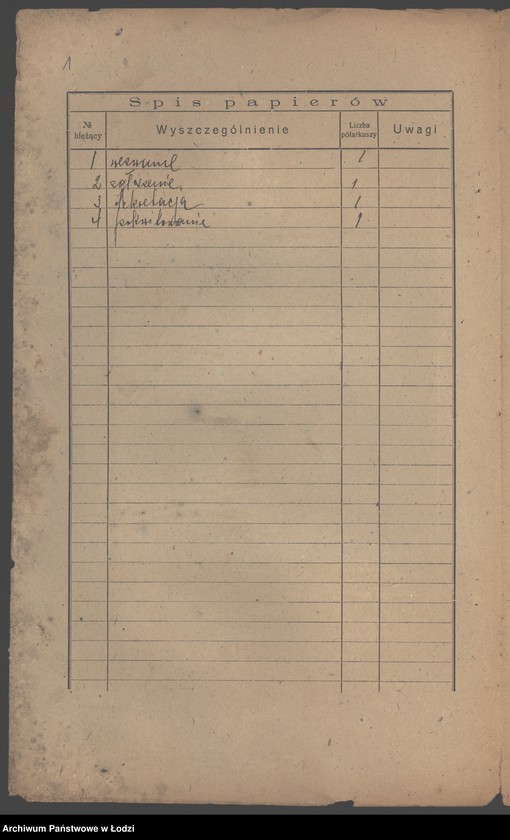 1
Spis papierów
№ bieżący Wyszczególnienie Liczba półarkuszy Uwagi
1 wezwanie 1
2 zgłoszenie 1
3 1
4 pokwitowanie 1
Archiwum Państwowe w Łodzi